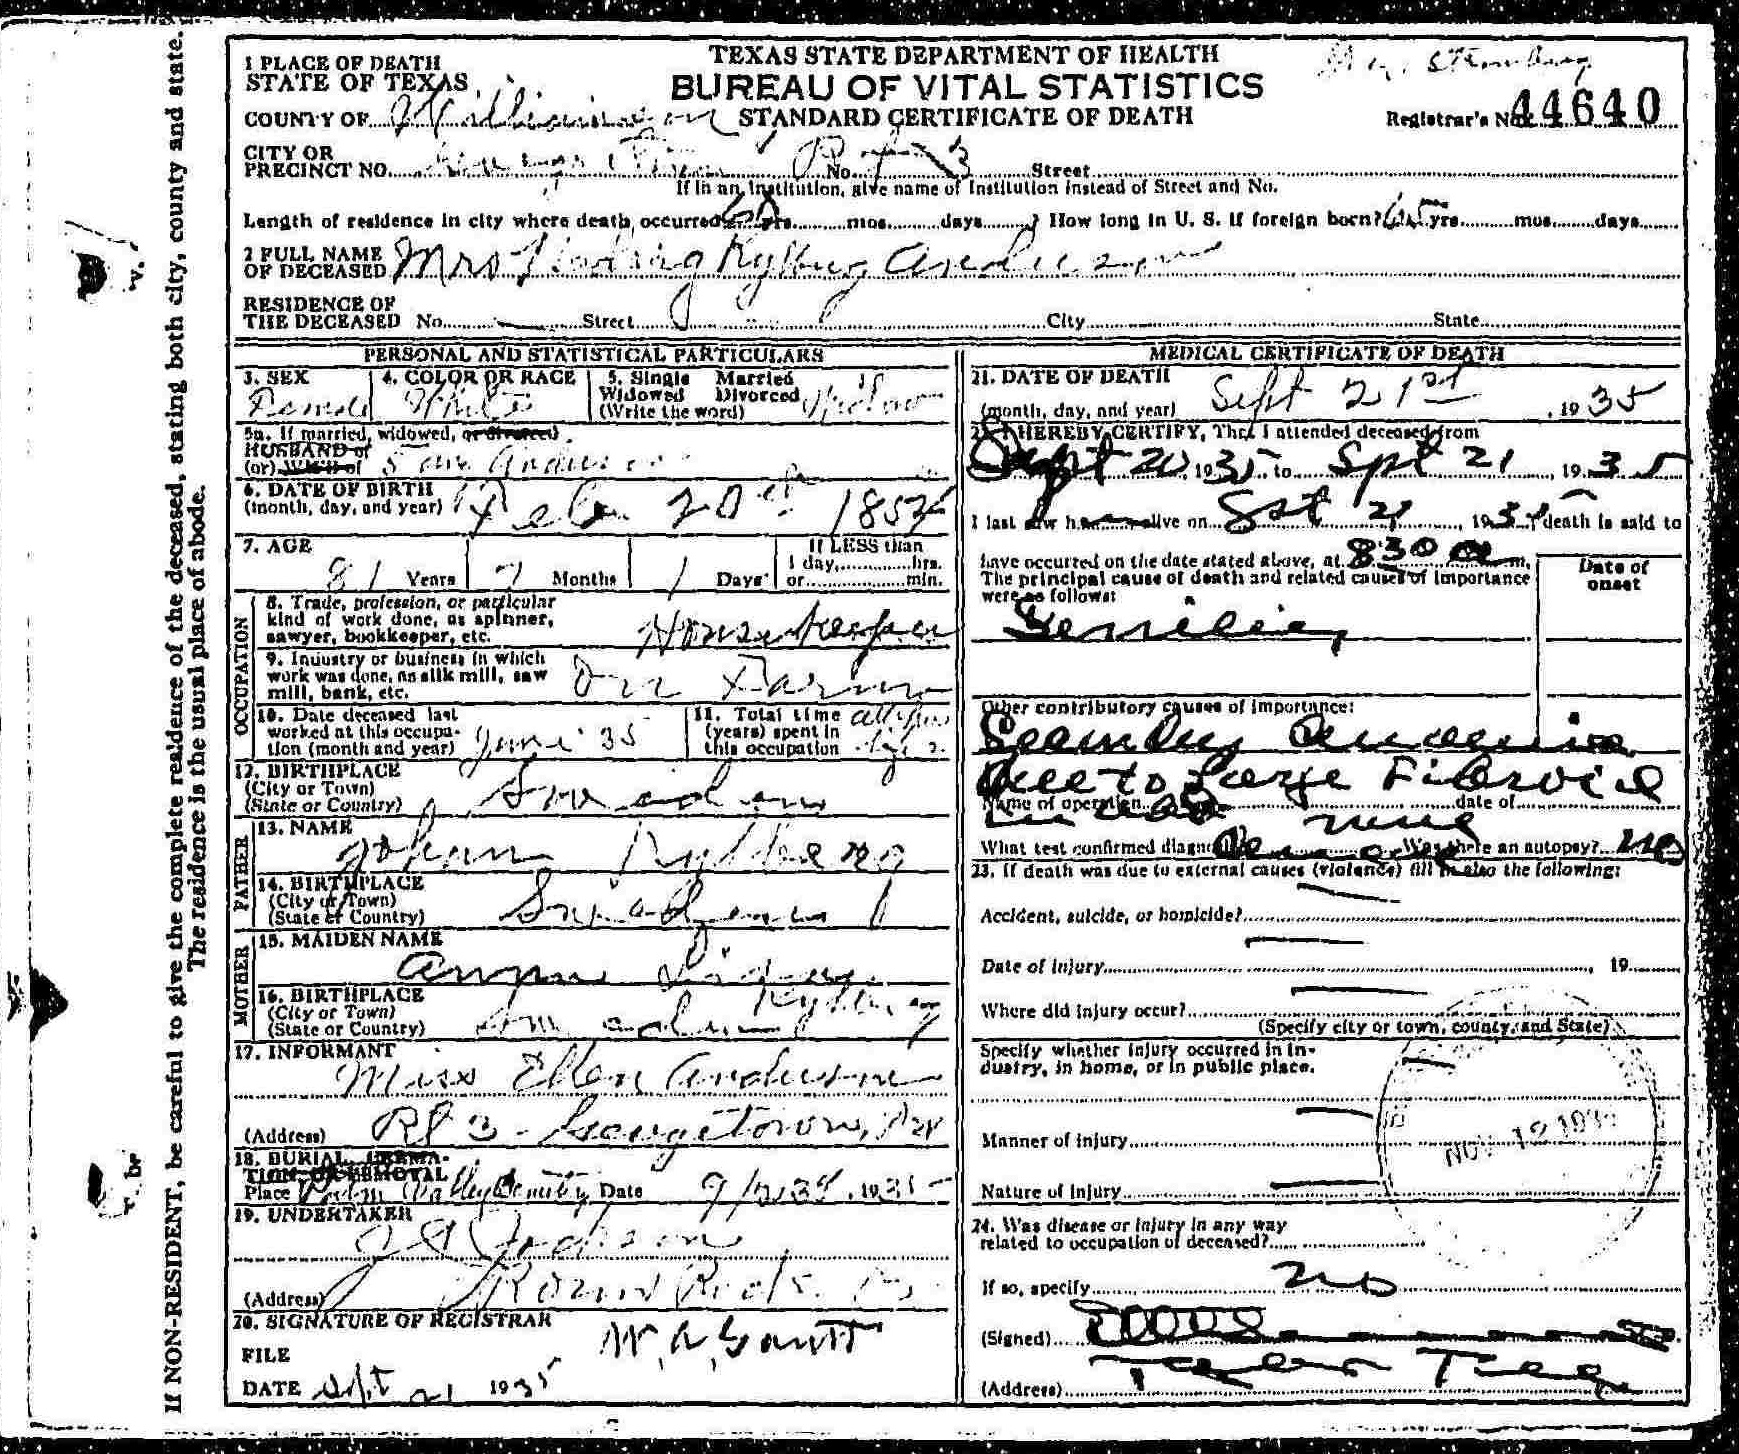 If NON-RESIDENT, be careful to give the complete residence of the deceased, stating both city, county and state.
The residence is the usual place of abode.
TEXAS STATE DEPARTMENT OF HEALTH
BUREAU OF VITAL STATISTICS
STANDARD CERTIFICATE OF DEATH
1 PLACE OF DEATH
STATE OF TEXAS
COUNTY OF Williamson
Registrar's No. 44640
CITY OR
PRECINCT NO. Georgetown Rt 3 No. Street
If in an institution, give name of Institution instead of Street and No.
Length of residence in city where death occurred yrs. mos. days ? How long in U. S. if foreign born? 65 yrs. mos. days
2 FULL NAME
OF DECEASED Mrs Hedvig Rydberg Anderson
RESIDENCE OF
THE DECEASED No. Street City State
PERSONAL AND STATISTICAL PARTICULARS
3. SEX
Female
4. COLOR OR RACE
White
5. Single Married
Widowed Divorced
(Write the word) Widow
5a. If married, widowed, or divorced
HUSBAND of
(or) WIFE of Anderson
6. DATE OF BIRTH
(month, day, and year) Feb 20th 1854
7. AGE
81 Years 7 Months 1 Days
If LESS than
1 day, hrs.
or min.
OCCUPATION
8. Trade, profession, or particular
kind of work done, as spinner,
sawyer, bookkeeper, etc. Housekeeper
9. Industry or business in which
work was done, as silk mill, saw
mill, bank, etc. On Farm
10. Date deceased last
worked at this occupa-
tion (month and year) June 35
11. Total time
(years) spent in
this occupation all her life
12. BIRTHPLACE
(City or Town)
(State or Country) Sweden
FATHER
13. NAME
Johan Rydberg
14. BIRTHPLACE
(City or Town)
(State or Country) Sweden
MOTHER
15. MAIDEN NAME
Anna
Rydberg
16. BIRTHPLACE
(City or Town)
(State or Country) Sweden
17. INFORMANT
Miss Ellen Anderson
(Address) Rt 3 - Georgetown, Tex
18. BURIAL, CREMA-
TION, OR REMOVAL
Place Palm Valley Cemetery Date 1935
19. UNDERTAKER
(Address) Round Rock
20. SIGNATURE OF REGISTRAR
W. A. Gantt
FILE
DATE Sept 21 1935
MEDICAL CERTIFICATE OF DEATH
21. DATE OF DEATH
(month, day, and year) Sept 21st, 1935
22. I HEREBY CERTIFY, That I attended deceased from
Sept 20, 1935 to Spt 21, 1935
I last saw h alive on 21, 1935, death is said to
have occurred on the date stated above, at 8:30 a m.
The principal cause of death and related causes of importance
were as follows:
Date of
onset
Senility
Other contributory causes of importance:
Secondary Anaemia
due to large Fibroid
Name of operation date of
none
What test confirmed diagnosis? Was there an autopsy? no
23. If death was due to external causes (violence) fill in also the following:
Accident, suicide, or homicide?
Date of injury , 19
Where did injury occur?
(Specify city or town, county, and State)
Specify whether injury occurred in in-
dustry, in home, or in public place.
Manner of injury
NOV 12 193
Nature of injury
24. Was disease or injury in any way
related to occupation of deceased?
If so, specify no
(Signed)
(Address) Taylor Tex